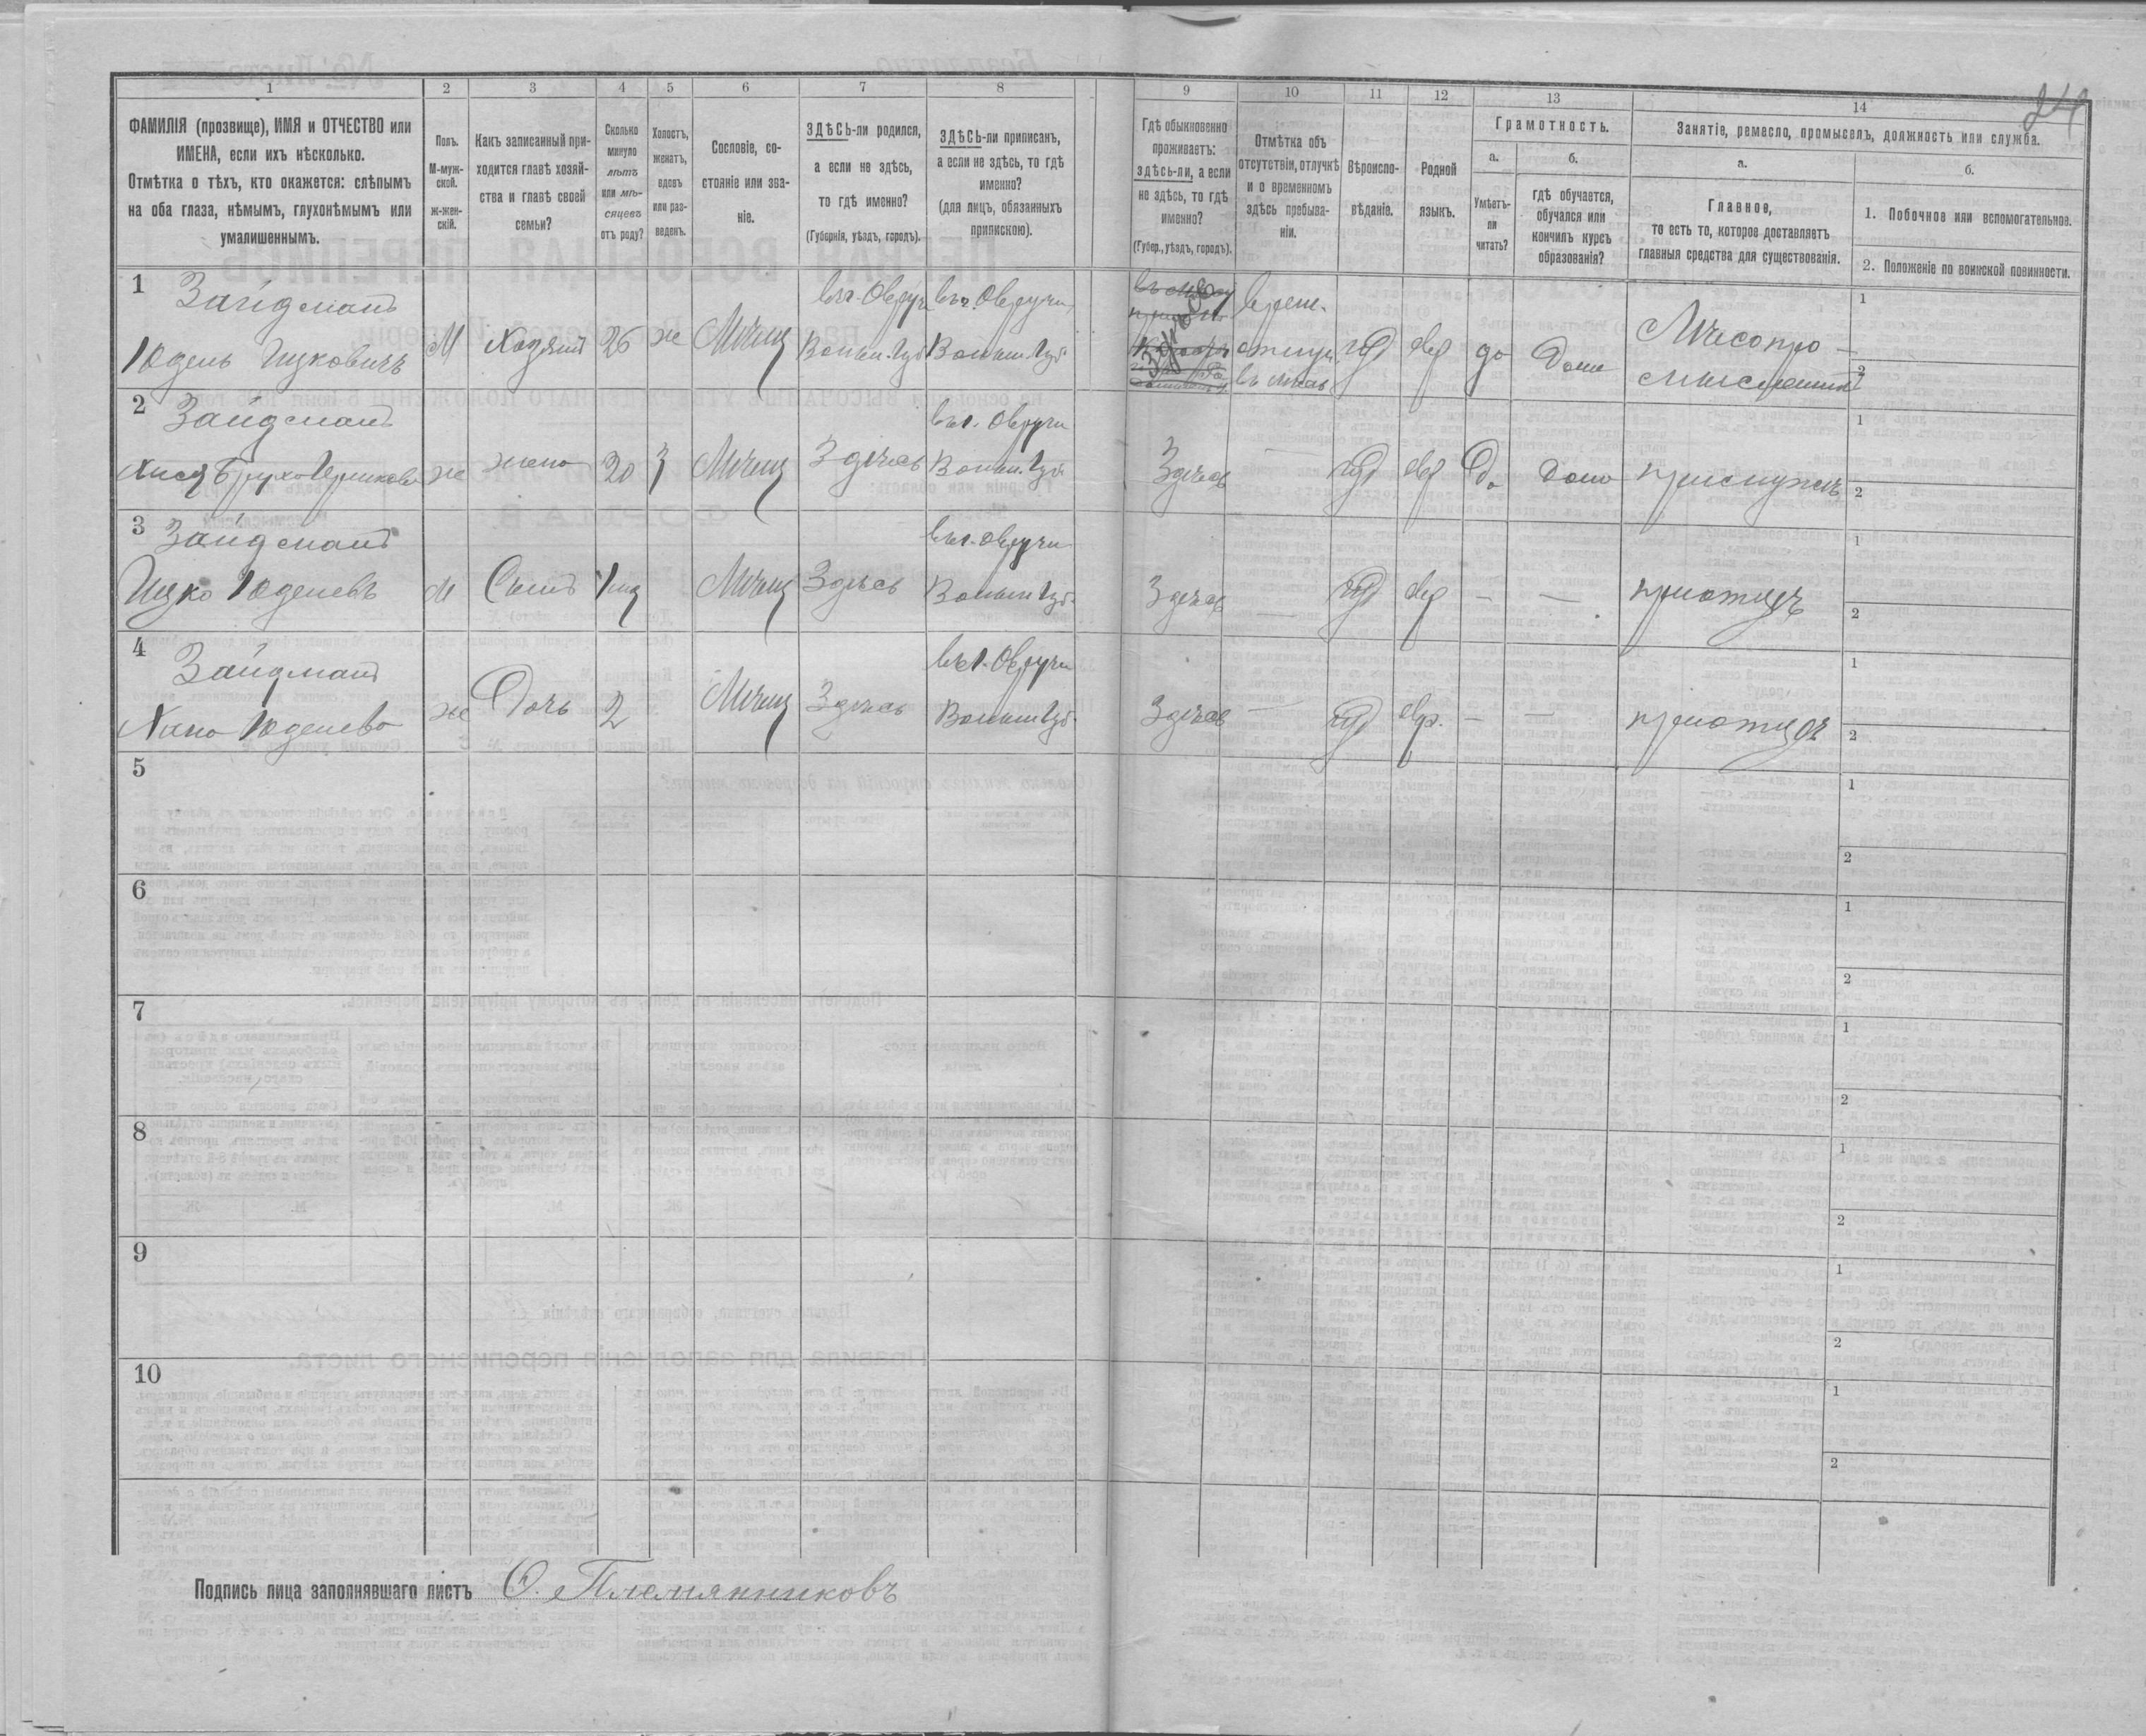 24
1 2 3 4 5 6 7 8 9 10 11 12 13 14
ФАМИЛІЯ (прозвище), ИМЯ и ОТЧЕСТВО или
ИМЕНА, если ихъ нѣсколько.
Отмѣтка о тѣхъ, кто окажется: слѣпымъ
на оба глаза, нѣмымъ, глухонѣмымъ или
умалишеннымъ.
Полъ.
М-муж-
ской.
ж-жен-
скій.
Какъ записанный при-
ходится главѣ хозяй-
ства и главѣ своей
семьи?
Сколько
минуло
лѣтъ
или мѣ-
сяцевъ
отъ роду?
Холостъ,
женатъ,
вдовъ
или раз-
веденъ.
Сословіе, со-
стояніе или зва-
ніе.
ЗДѢСЬ-ли родился,
а если не здѣсь,
то гдѣ именно?
(Губернія, уѣздъ, городъ).
ЗДѢСЬ-ли приписанъ,
а если не здѣсь, то гдѣ
именно?
(для лицъ, обязанныхъ
припискою).
Гдѣ обыкновенно
проживаетъ:
здѣсь-ли, а если
не здѣсь, то гдѣ
именно?
(Губер., уѣздъ, городъ).
Отмѣтка объ
отсутствіи, отлучкѣ
и о временномъ
здѣсь пребыва-
ніи.
Вѣроиспо-
вѣданіе.
Родной
языкъ.
Грамотность.
а.
Умѣетъ-
ли
читать?
б.
гдѣ обучается,
обучался или
кончилъ курсъ
образованія?
Занятіе, ремесло, промыселъ, должность или служба.
а.
Главное,
то есть то, которое доставляетъ
главныя средства для существованія.
б.
1. Побочное или вспомогательное.
2. Положеніе по воинской повинности.
1 Зайдманъ
Юдель Ицковичъ
М Хозяинъ 26 ж Мѣщ
въ г. Овручѣ
Волын. Губ
въ г. Овручи
Волын. Губ.
Здѣсь
врем.
отлуч
іуд евр да Дома
Мѣсопро-
мышленникъ
1
2
2 Зайдманъ
ж жена 20 З Мѣщ Здѣсь
въ г. Овручи
Волын. Губ.
Здѣсь — іуд евр Да Дома при мужѣ
1
2
3 Зайдманъ
Ицко Юделевъ
М Сынъ Мѣщ Здѣсь
въ г. Овручи
Волын Губ.
Здѣсь — іуд евр — — при отцѣ
1
2
4 Зайдманъ
Хана Юделева
ж Дочь 2 Мѣщ Здѣсь
въ г. Овручи
Волын Губ.
Здѣсь — іуд евр. — — при отцѣ
1
2
5
1
2
6
1
2
7
1
2
8
1
2
9
1
2
10
1
2
Подпись лица заполнявшаго листъ О. Племянниковъ